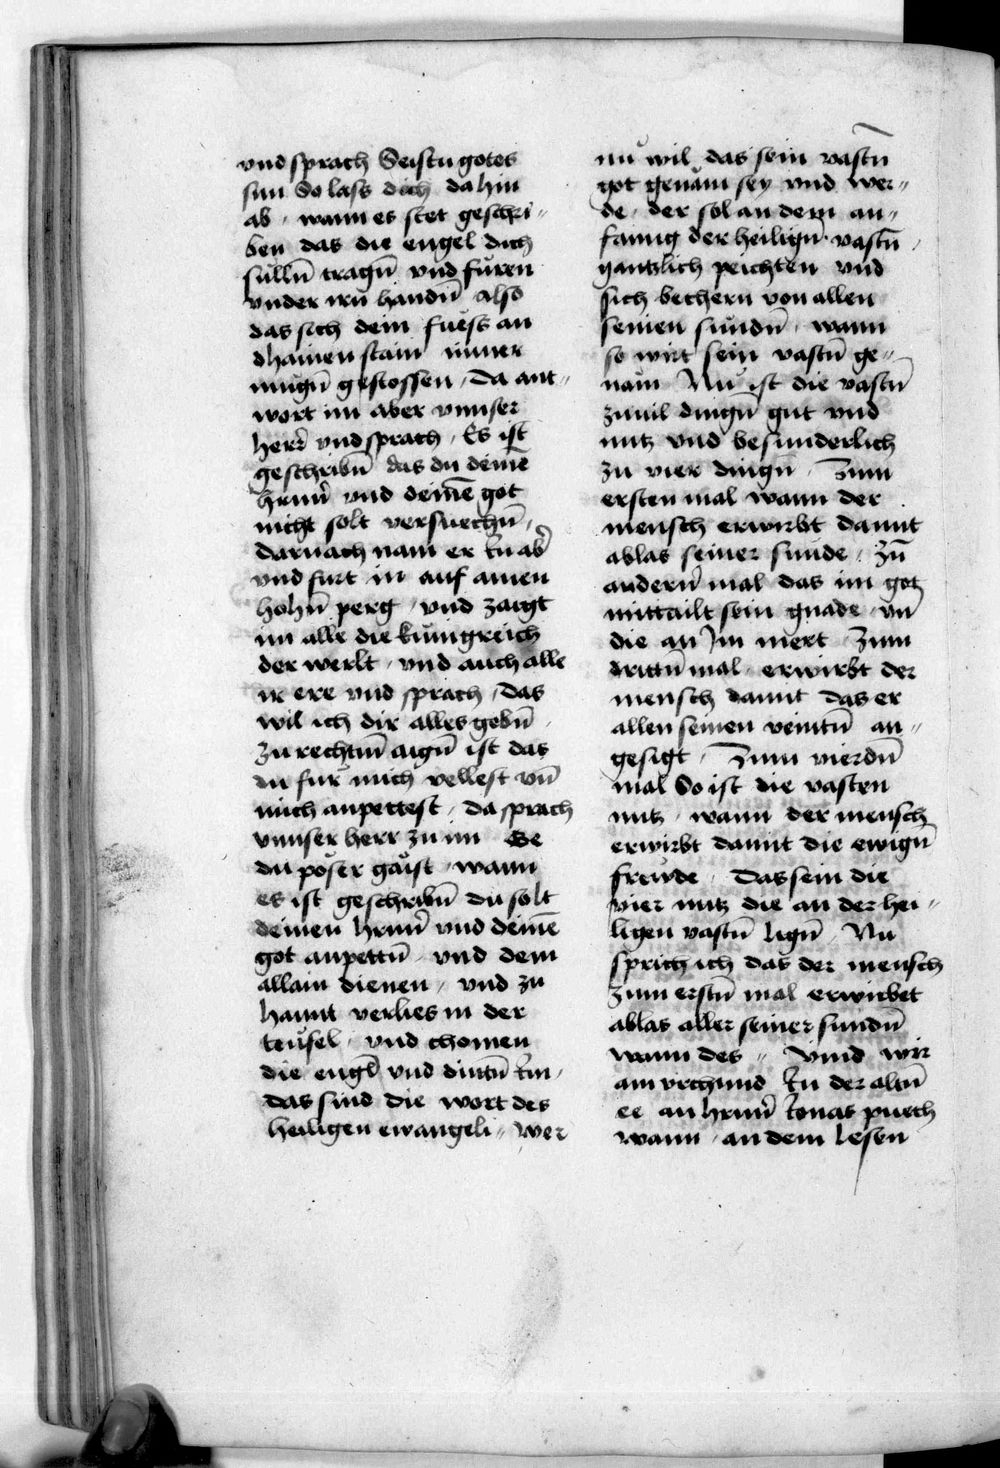 vnd sprach Seistu gotes
sun So lass dich da hin
ab · wann es stet geschri„
ben das die engel dich
sullñ tragñ vnd fůren
vnder irñ handñ also
das sich dein fuess an
dhainen stain nimer
mugñ gestossen / Da ant„
wort im aber vnnser
herr̃ vnd sprach / Es ist
geschribñ das du deinẽ
hrnñ vnd deinẽ got
nicht solt versuechñ /
darnach nam er In ab̃
vnd furt in auf ainen
hohñ perg / vnd zaigt
im alle die kunigreich
der werlt / vnd auch alle
ir ere vnd sprach / Das
wil ich dir alles gebñ
zu rechtm̃ aigñ ist das
du fur mich vellest vñ
mich anpettest / da sprach
vnnser herr zu im Ge
du poser gaist / wann
es ist geschribñ du solt
deinen hrnñ vnd deinẽ
got anpettñ / vnd dem
allain dienen / vnd zu
hannt verlies in der
teufel / vnd chomen
die engl̃ vnd dintñ Im /
das sind die wort des
heiligen ewangeli„ Wer
nu wil das sein vastñ
got genåm sey vnd wer„
de / der sol an dem an„
faing der heiligñ vastñ /
gantzlich peichten vnd
sich bechern von allen
seinen sundñ / wann
so wirt sein vastñ ge„
nam Nu ist die vastñ
zuuil dingñ gut vnd
nutz vnd besunderlich
zu vier dingñ / Zum
ersten mal wann der
mensch erwirbt damit
ablas seiner sunde / Zũ
andern̄ mal das im got
mittailt sein gnade / vñ
die an Im mert / Zum
drittñ mal / erwirbt der
mensch damit das er
allen seinen veintñ an„
gesigt / Zum vierdñ
mal So ist die vasten
nutz / wann der mensch
erwirbt damit die ewigñ
freude / Das sein die
vier nutz die an der hei„
ligen vastñ ligñ / Nu
sprich ich das der mensch
zum erstñ mal erwirbet
ablas aller seiner sundñ
wann des „ Vind wir
ain vrchund In der altñ
ee an hrnñ Ionas puech
wann / an dem lesen